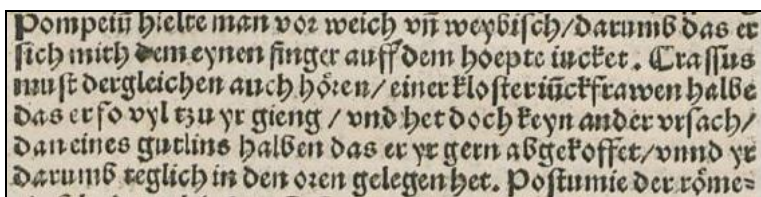 Pompeiū hielte man vor weich vñ weybisch/darumb das er
sich mith dem eynen finger auff dem hoepte iucket. Crassus
must dergleichen auch hören/einer klosteriückfrawen halbe
das er so vyl tzu yr gieng/vnd het doch keyn ander vrsach/
dan eines gutlins halben das er yr gern abgekoffet/vnnd yr
darumb teglich in den oren gelegen het. Postumie der röme-